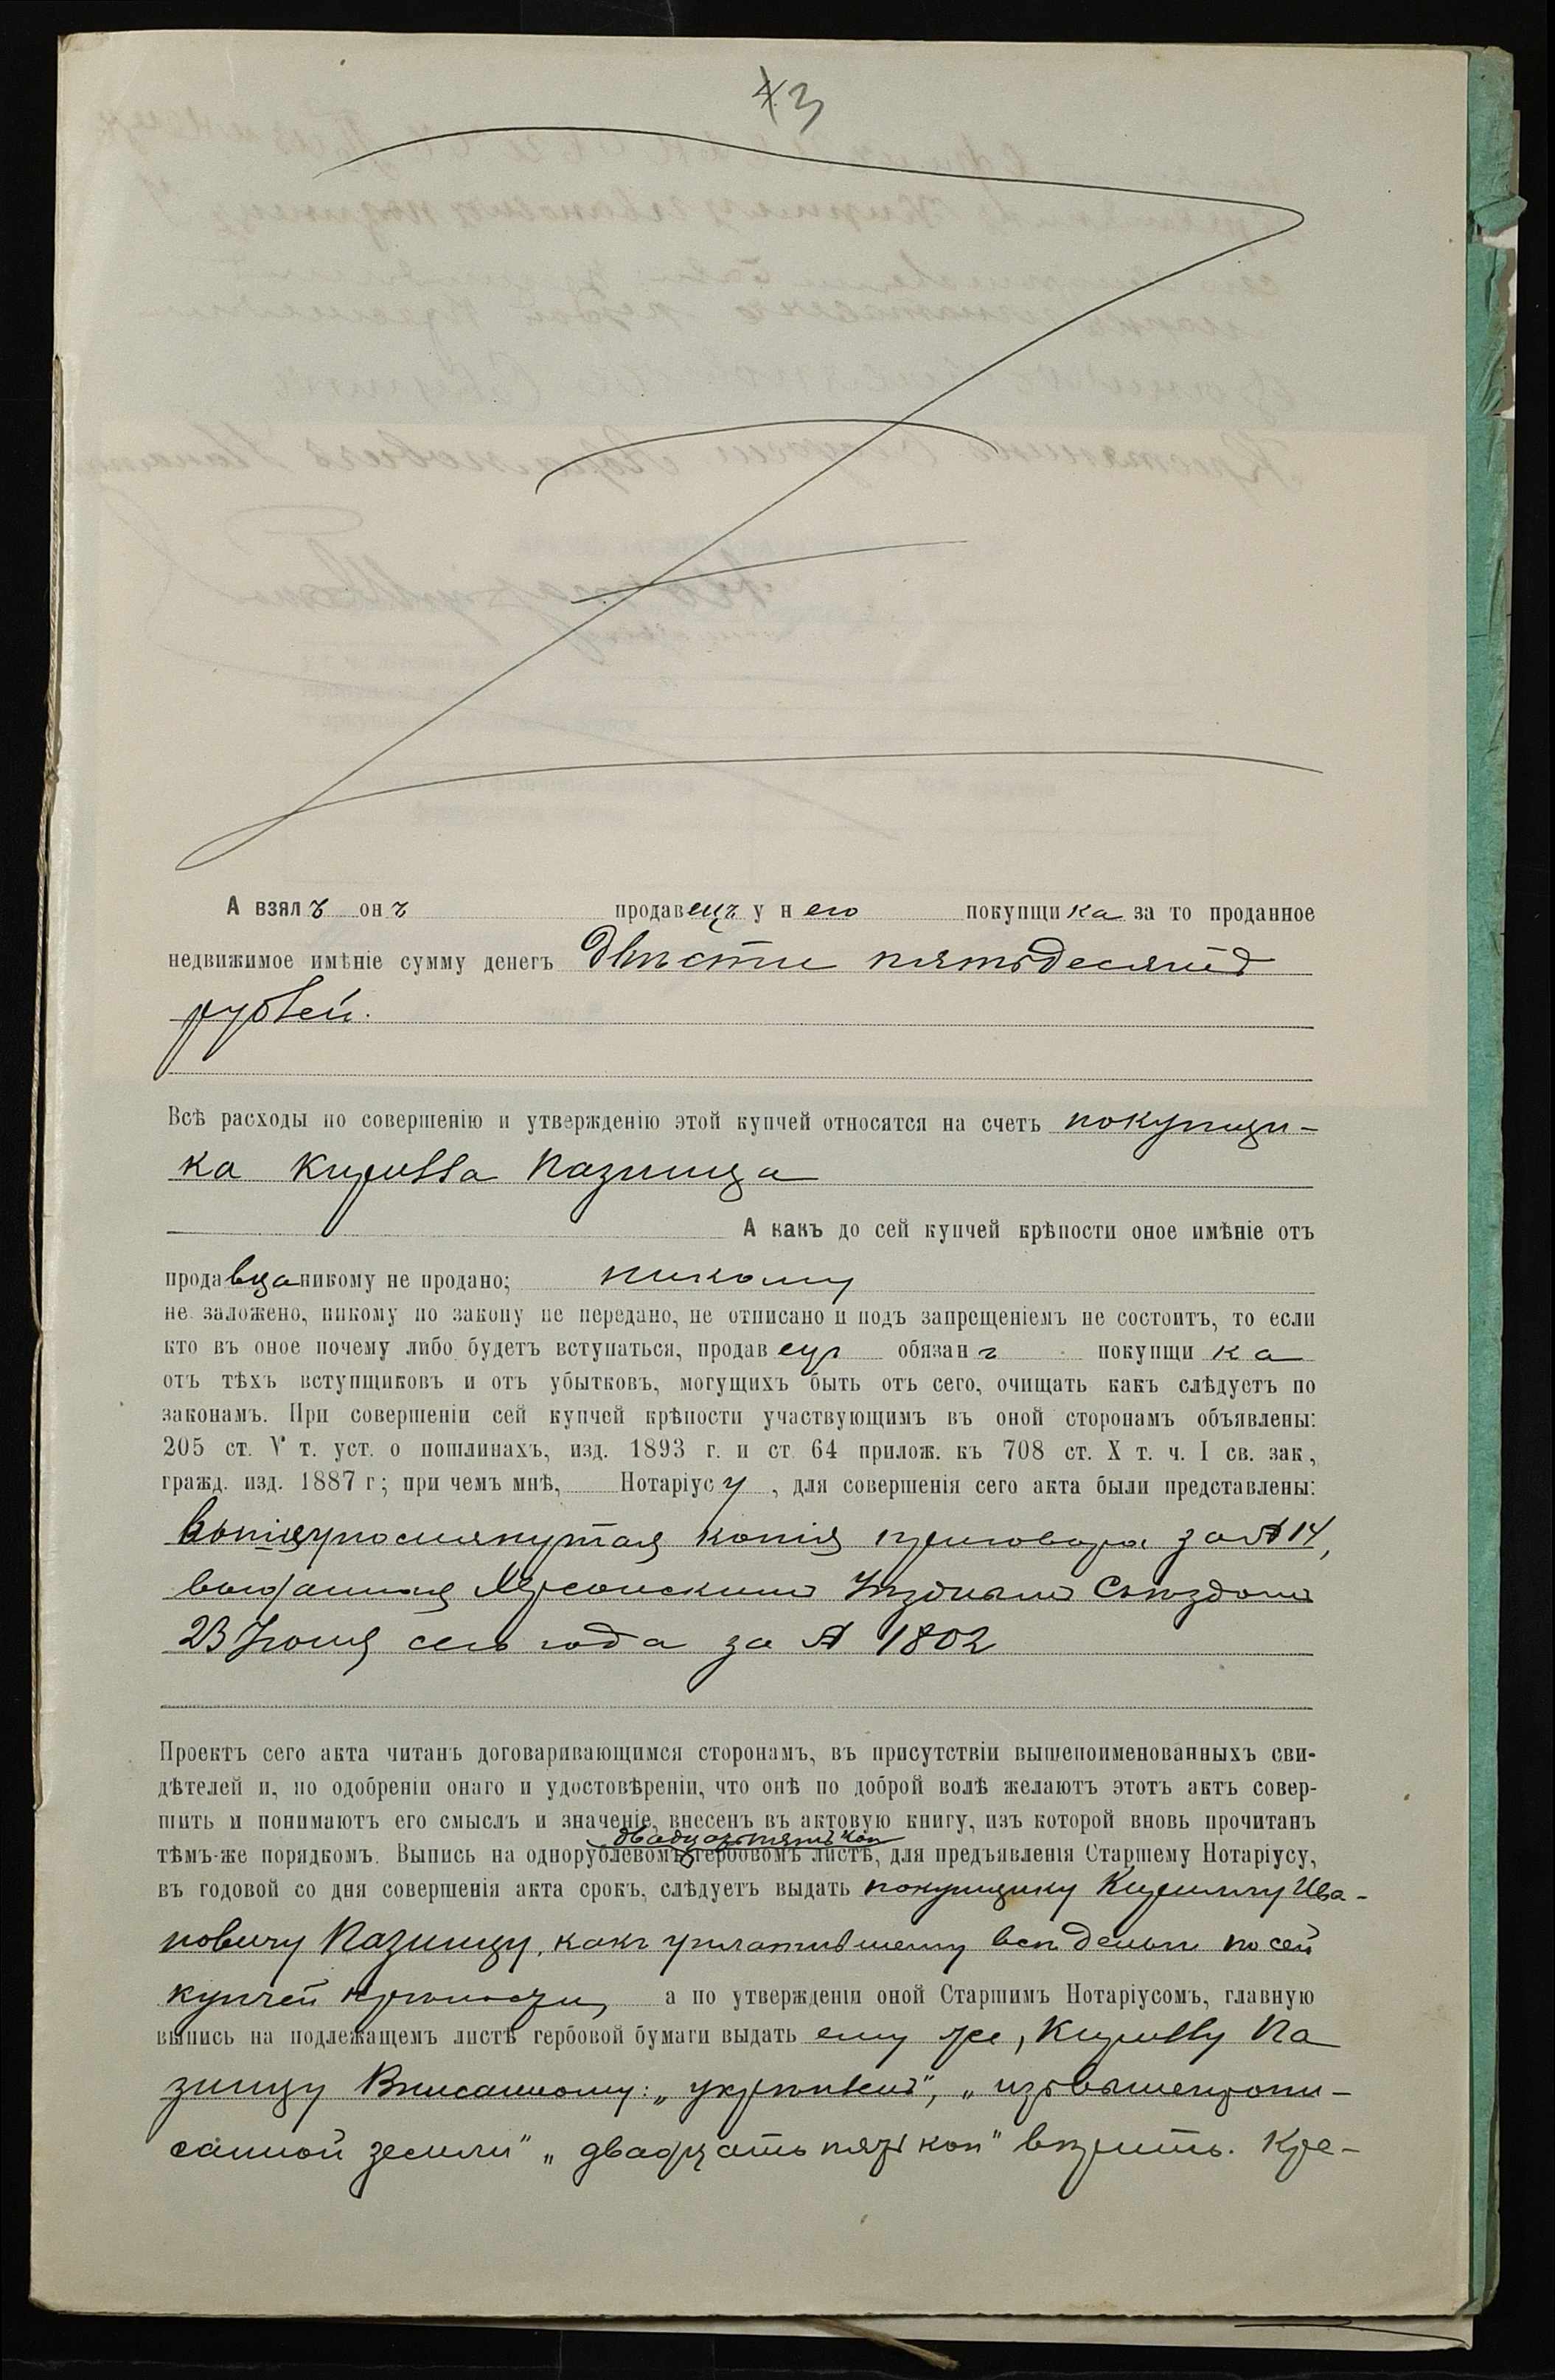 43
А взялъ онъ продавецъ у него покупщика за то проданное
недвижимое имѣніе сумму денегъ Двѣсти пятьдесятъ
рублей.
Всѣ расходы по совершенію и утвержденію этой купчей относятся на счетъ покупщи-
ка Кирилла Пазинца
А какъ до сей купчей крѣпости оное имѣніе отъ
продавца никому не продано; никому
не заложено, никому по закону не передано, не отписано и подъ запрещеніемъ не состоитъ, то если
кто въ оное почему либо будетъ вступаться, продавецъ обязанъ покупщика
отъ тѣхъ вступщиковъ и отъ убытковъ, могущихъ быть отъ сего, очищать какъ слѣдуетъ по
законамъ. При совершеніи сей купчей крѣпости участвующимъ въ оной сторонамъ объявлены:
205 ст. V т. уст. о пошлинахъ, изд. 1893 г. и ст. 64 прилож. къ 708 ст. X т. ч. I св. зак.,
гражд. изд. 1887 г; при чемъ мнѣ, Нотаріусу, для совершенія сего акта были представлены:
вышеупомянутая копія приговора за № 14,
выданная Херсонскимъ Уѣзднымъ Съѣздомъ
23 Іюня сего года за № 1802
Проектъ сего акта читанъ договаривающимся сторонамъ, въ присутствіи вышепоименованныхъ сви-
дѣтелей и, по одобреніи онаго и удостовѣреніи, что онѣ по доброй волѣ желаютъ этотъ актъ совер-
шить и понимаютъ его смыслъ и значеніе, внесенъ въ актовую книгу, изъ которой вновь прочитанъ
двадцатьпять коп
тѣмъ-же порядкомъ. Выпись на однорублевомъ гербовомъ листѣ, для предъявленія Старшему Нотаріусу,
въ годовой со дня совершенія акта срокъ, слѣдуетъ выдать покупщику Кириллу Ива-
новичу Пазинцу, какъ уплатившему всѣ деньги по сей
купчей крѣпости, а по утвержденіи оной Старшимъ Нотаріусомъ, главную
выпись на подлежащемъ листѣ гербовой бумаги выдать ему же, Кириллу Па
зинцу Вписанному: „укрѣпилъ", „изъ вышепрописанной
санной земли" „двадцать пять коп" вѣрить. Кре-